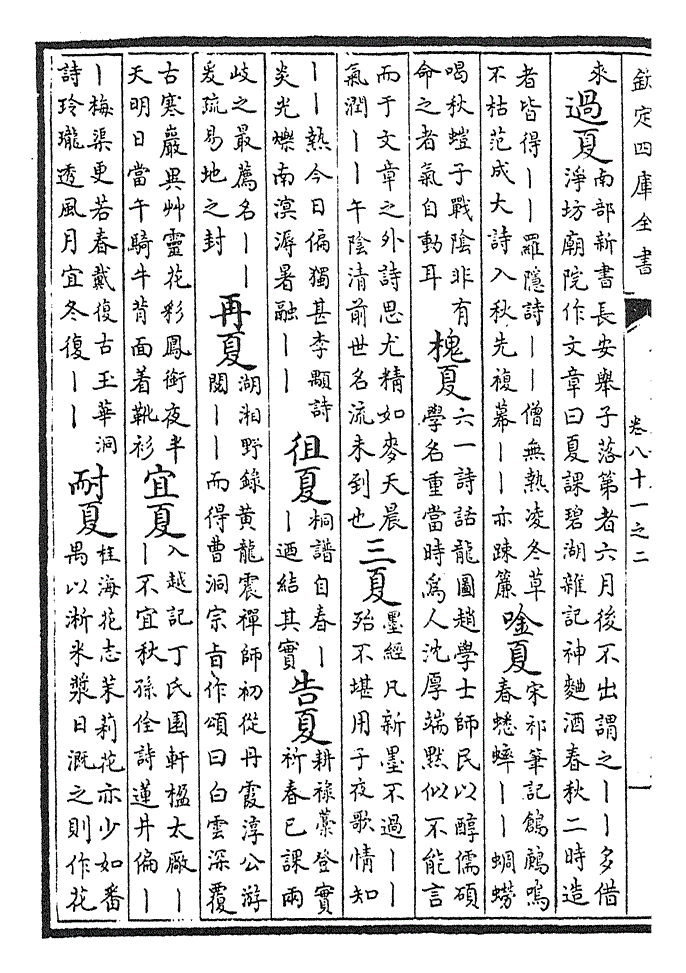 欽定四庫全書 卷八十一之二 一
來
過夏
南部新書長安舉子落第者六月後不出謂之丨丨多借
淨坊廟院作文章曰夏課碧湖雜記神麯酒春秋二時造
者皆得丨丨羅隱詩丨丨僧無熱凌冬草
不枯范成大詩入秋先複幕丨丨亦疎簾
唫夏
宋祁筆記鶬鶊鳴
春蟋蟀丨丨蜩蟧
喝秋螘子戰陰非有
命之者氣自動耳
槐夏
六一詩話龍圖趙學士師民以醇儒碩
學名重當時為人沈厚端黙似不能言
而于文章之外詩思尤精如麥天晨
氣潤丨丨午陰清前世名流未到也
三夏
墨經凡新墨不過丨丨
殆不堪用子夜歌情知
丨丨熱今日偏獨甚李顒詩
炎光爍南溟溽暑融丨丨
徂夏
桐譜自春丨
丨迺結其實
告夏
耕祿藁登實
祈春已課兩
岐之最薦名丨丨
爰疏易地之封
再夏
湖湘野錄黃龍震禪師初從丹霞淳公游
閱丨丨而得曹洞宗旨作頌曰白雲深覆
古寒巖異艸靈花彩鳳銜夜半
天明日當午騎牛背面着靴衫
宜夏
入越記丁氏園軒楹太敞丨
丨不宜秋孫佺詩蓮井偏丨
丨梅渠更若春戴復古玉華洞
詩玲瓏透風月宜冬復丨丨
耐夏
桂海花志茉莉花亦少如番
禺以淅米漿日溉之則作花